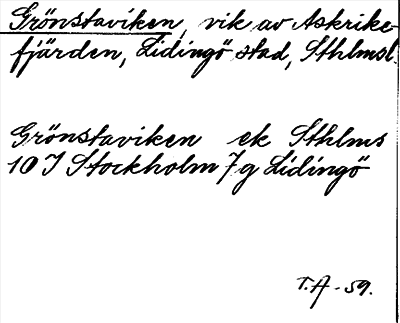 Grönstaviken, vik av Askrike-
fjärden, Lidingö stad, Sthlmsl.
Grönstaviken ek Sthlms
10 J Stockholm 7 g Lidingö
T.A -59.